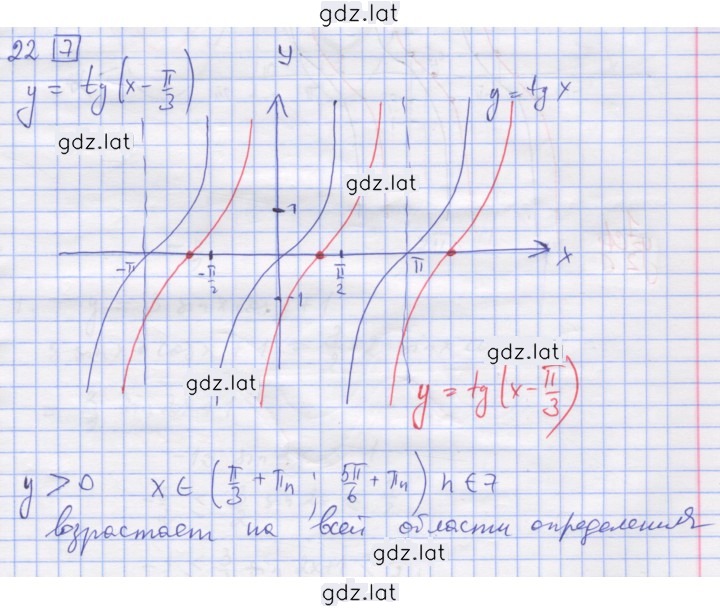 gdz.lat
22 7
y = tg(x - π/3)
y
y = tg x
gdz.lat
gdz.lat
1
-π
-π/2
π/2
π
x
-1
gdz.lat
gdz.lat
y = tg(x - π/3)
y > 0 x ∈ (π/3 + πn ; 5π/6 + πn) n ∈ Z
возрастает на всей области определения
gdz.lat
gdz.lat